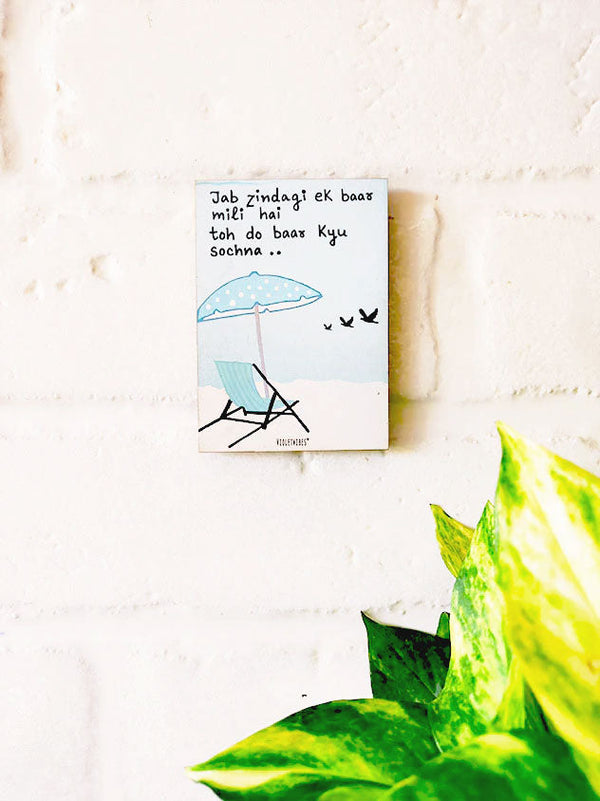 Jab zindagi ek baar
mili hai
toh do baar kyu
sochna ..
VIOLETVIBES™